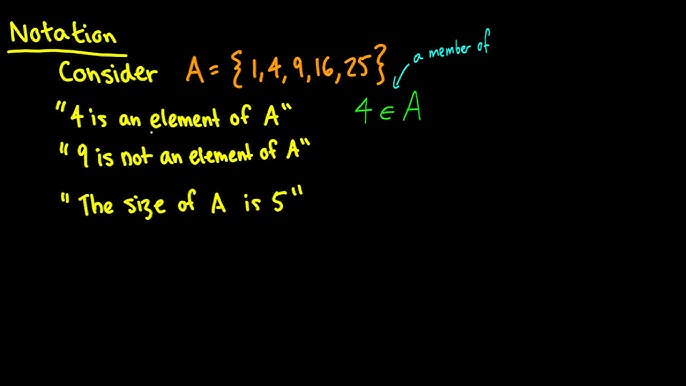 Notation
Consider A = {1, 4, 9, 16, 25}
a member of
"4 is an element of A"
4 ∈ A
"9 is not an element of A"
"The size of A is 5"